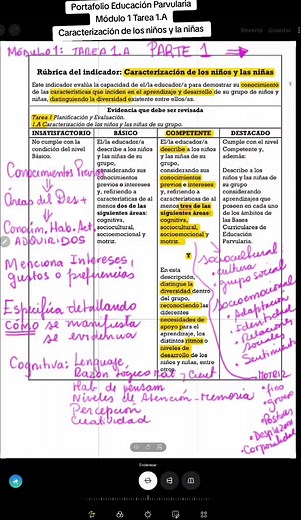 Portafolio Educación Parvularia
Módulo 1 Tarea 1.A
Caracterización de los niños y las niñas
Revertir
Guardar
Módulo 1: TAREA 1.A PARTE 1
Rúbrica del indicador: Caracterización de los niños y las niñas
Este indicador evalúa la capacidad de el/la educador/a para demostrar su conocimiento
de las características que inciden en el aprendizaje y desarrollo de su grupo de niños y
niñas, distinguiendo la diversidad existente entre ellos/as.
Evidencia que debe ser revisada
Tarea 1 Planificación y Evaluación.
1.A Caracterización de los niños y las niñas de su grupo.
INSATISFACTORIO BÁSICO COMPETENTE DESTACADO
No cumple con la condición del nivel Básico.
El/la educador/a describe a los niños y las niñas de su grupo, considerando sus conocimientos previos e intereses y, refiriendo a características de al menos dos de las siguientes áreas: cognitiva, sociocultural, socioemocional y motriz.
El/la educador/a describe a los niños y las niñas de su grupo, considerando sus conocimientos previos e intereses y, refiriendo a características de al menos tres de las siguientes áreas: cognitiva, sociocultural, socioemocional y motriz.
Y
En esta descripción, distingue la diversidad dentro del grupo, reconociendo las diferentes necesidades de apoyo para el aprendizaje, los distintos ritmos o niveles de desarrollo de los niños y niñas, entre otros.
Cumple con el nivel Competente y, además:
Describe a los niños y las niñas de su grupo considerando aprendizajes que poseen en cada uno de los ámbitos de las Bases Curriculares de Educación Parvularia.
Conocimientos Previos
Áreas del Des
Conocim, Hab, Act,
ADQUIRIDOS
Menciona Intereses,
gustos o preferencias
Especifica detallando
como se manifiesta
se evidencia
Cognitiva: Lenguaje,
Razon lógico Mat y Cuant
Hab de pensam
Niveles de Atención - Memoria
Percepción
Creatividad
Sociocultural
· cultura
· grupo social
Socioemocional
· Adaptación
· Identidad
· Relaciones
sociales
· Sentimientos
MOTRIZ
· fino
· grueso
· Postura
· Desplazam
· Corporalidad
Enderezar